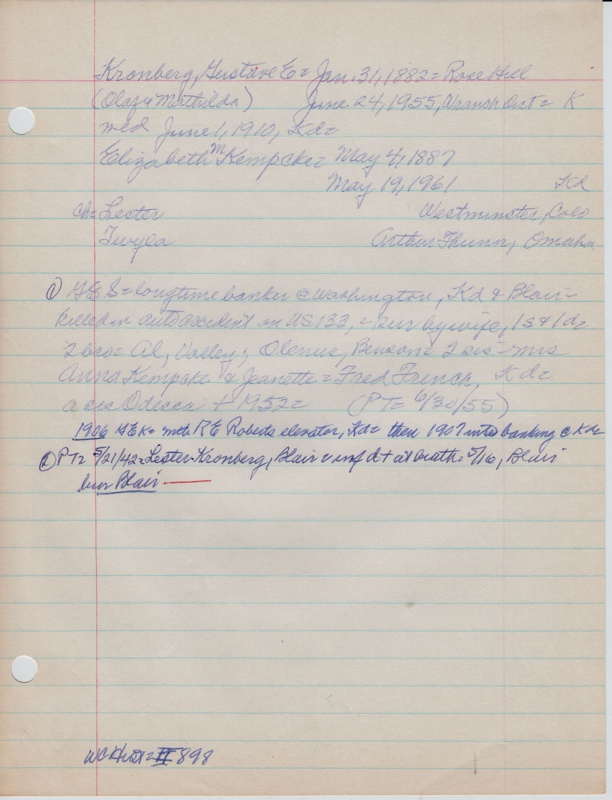 Kronberg, Gustave E = Jan. 31, 1882 = Rose Hill
(Olaf & Mathilda) June 24, 1955, Wransh Dist = K
med June 1, 1910, Kd =
Elizabeth M Kempcke = May 4, 1887
May 19, 1961 Kd
ch = Lester Westminster, Colo
Twyla Arthur Thunn, Omaha
① G E S = longtime banker @ Washington, Kd & Blair =
killed in auto accident on US 133, = sur by wife, 1 s & 1 d =
2 bro = Al, Valley; Olenus, Benson = 2 sis = Mrs
Anna Kempcke & Jeanette = Fred French, Kd =
a sis Odessa + 1952 = (PT = 6/30/55)
1906 G E K = with R E Roberts elevator, Kd = then 1907 into banking @ Kd =
② PT = 5/21/42 = Lester Kronberg, Blair = inf d + at birth = 5/16, Blair
bur Blair
WC Hist = II 898